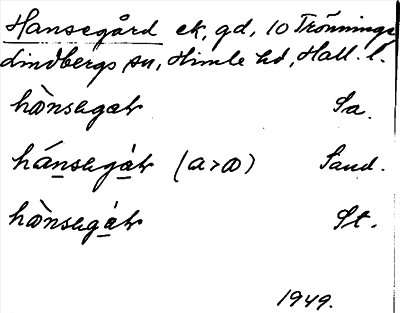 Hansegård ek, gd, 10 Trönninge,
Lindbergs sn, Himle hd, Hall. l.
hònsegɑr Sa.
hánsegár (a>ɒ) Sand.
hònsegár St.
1949.